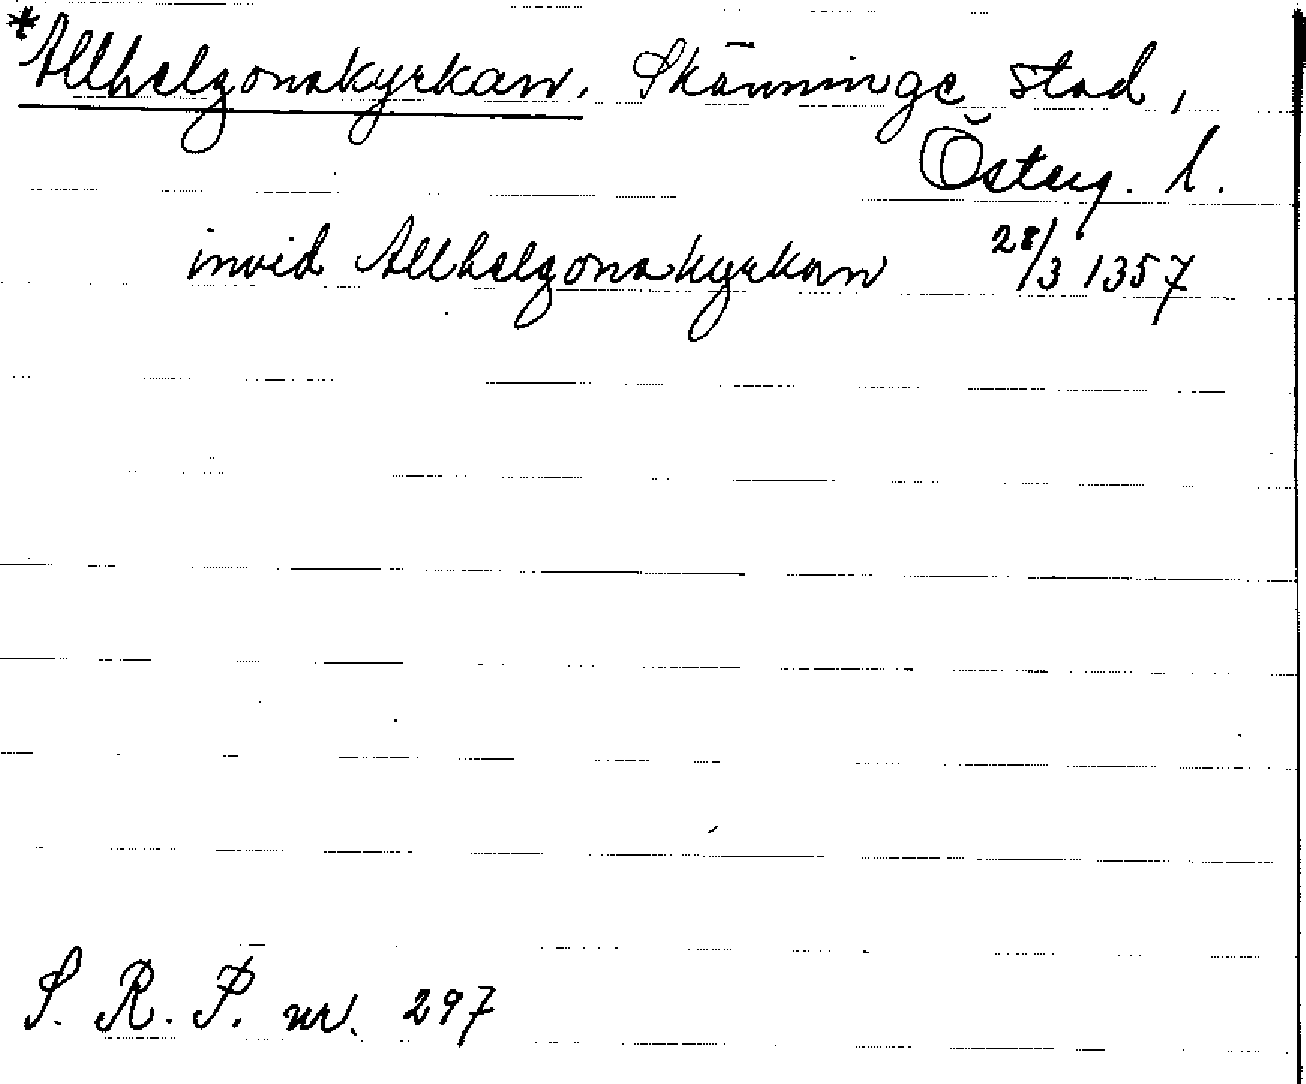 *Allhelgonakyrkan, Skänninge stad,
Österg. l.
invid Allhelgonakyrkan 28/3 1357
S. R. P. nr. 297